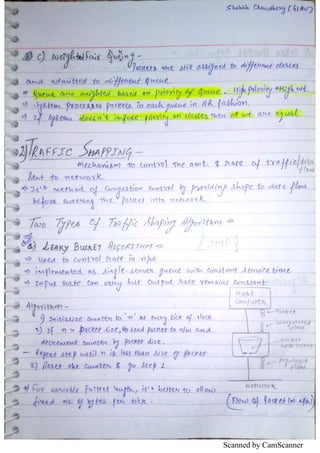 Shobhit Chaudhary [GLAU]
c) Weighted Fair Queing -
Packets are still assigned to different classes
and admitted to different queue.
→ Queue are weighted based on priority of queue. High Priority → High wt
→ System processes packets in each queue in RR fashion.
→ If system doesn't impose priority on classes then all wt are equal
2) TRAFFIC SHAPPING -
Mechanism to control the amt. & rate of traffic/data flow
sent to network.
→ It's method of Congestion control by providing shape to data flow
before entering the packet into network.
Two Types of Traffic Shaping Algorithm ⇒
a) LEAKY BUCKET ALGORITHM ⇒ [IMP]
→ used to control rate in n/w
→ implemented as single-server queue with constant service time
→ Input rate can vary but output rate remains constant
Algorithm -
HOST
COMPUTER
1) Initialize counter to 'n' at every tick of clock
Packet
Unregulated
flow
2) If n > packet size, send packet to n/w and
decrement counter by packet size.
- Repeat step until n is less than size of packet
Regulated
flow
3) Reset the counter & go step 1
NETWORK
→ For variable packet length, it's better to allow
fixed no. of bytes per tick.
(Flow of Packet in n/w)
Scanned by CamScanner